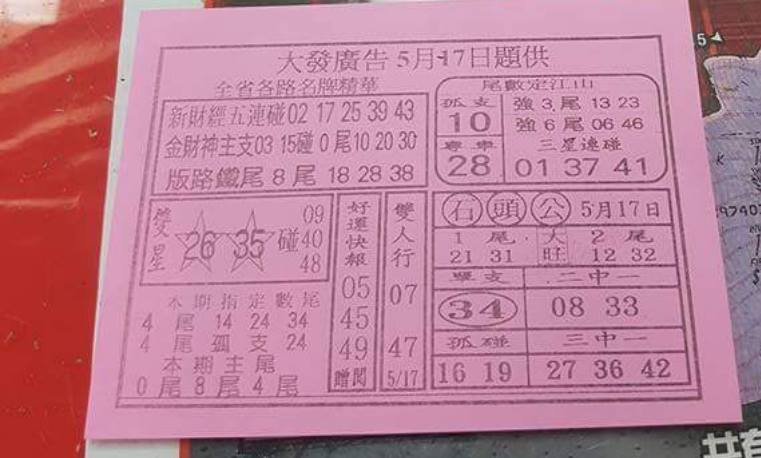 大發廣告 5月17日題供
全省各路名牌精華
新財經五連碰02 17 25 39 43
金財神主支03 15碰 0 尾10 20 30
版路鐵尾 8 尾 18 28 38
尾數定江山
孤支
10
強 3 尾 13 23
強 6 尾 06 46
專車
28
三星連碰
01 37 41
雙星
26 35 碰
09
40
48
本期指定數尾
4 尾 14 24 34
4 尾 孤 支 24
本期主尾
0 尾 8 尾 4 尾
好運快報
05
45
49
贈閱
雙人行
07
47
5/17
石頭公 5月17日
1 尾
21 31
大旺
2 尾
12 32
單支
34
二中一
08 33
孤碰
16 19
三中一
27 36 42
5
9740
共有